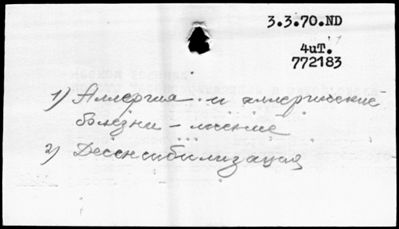 3.3.70.ND
4чит.
772183
1) Аллергия и аллергические
болезни - лечение
2) Десенсибилизация